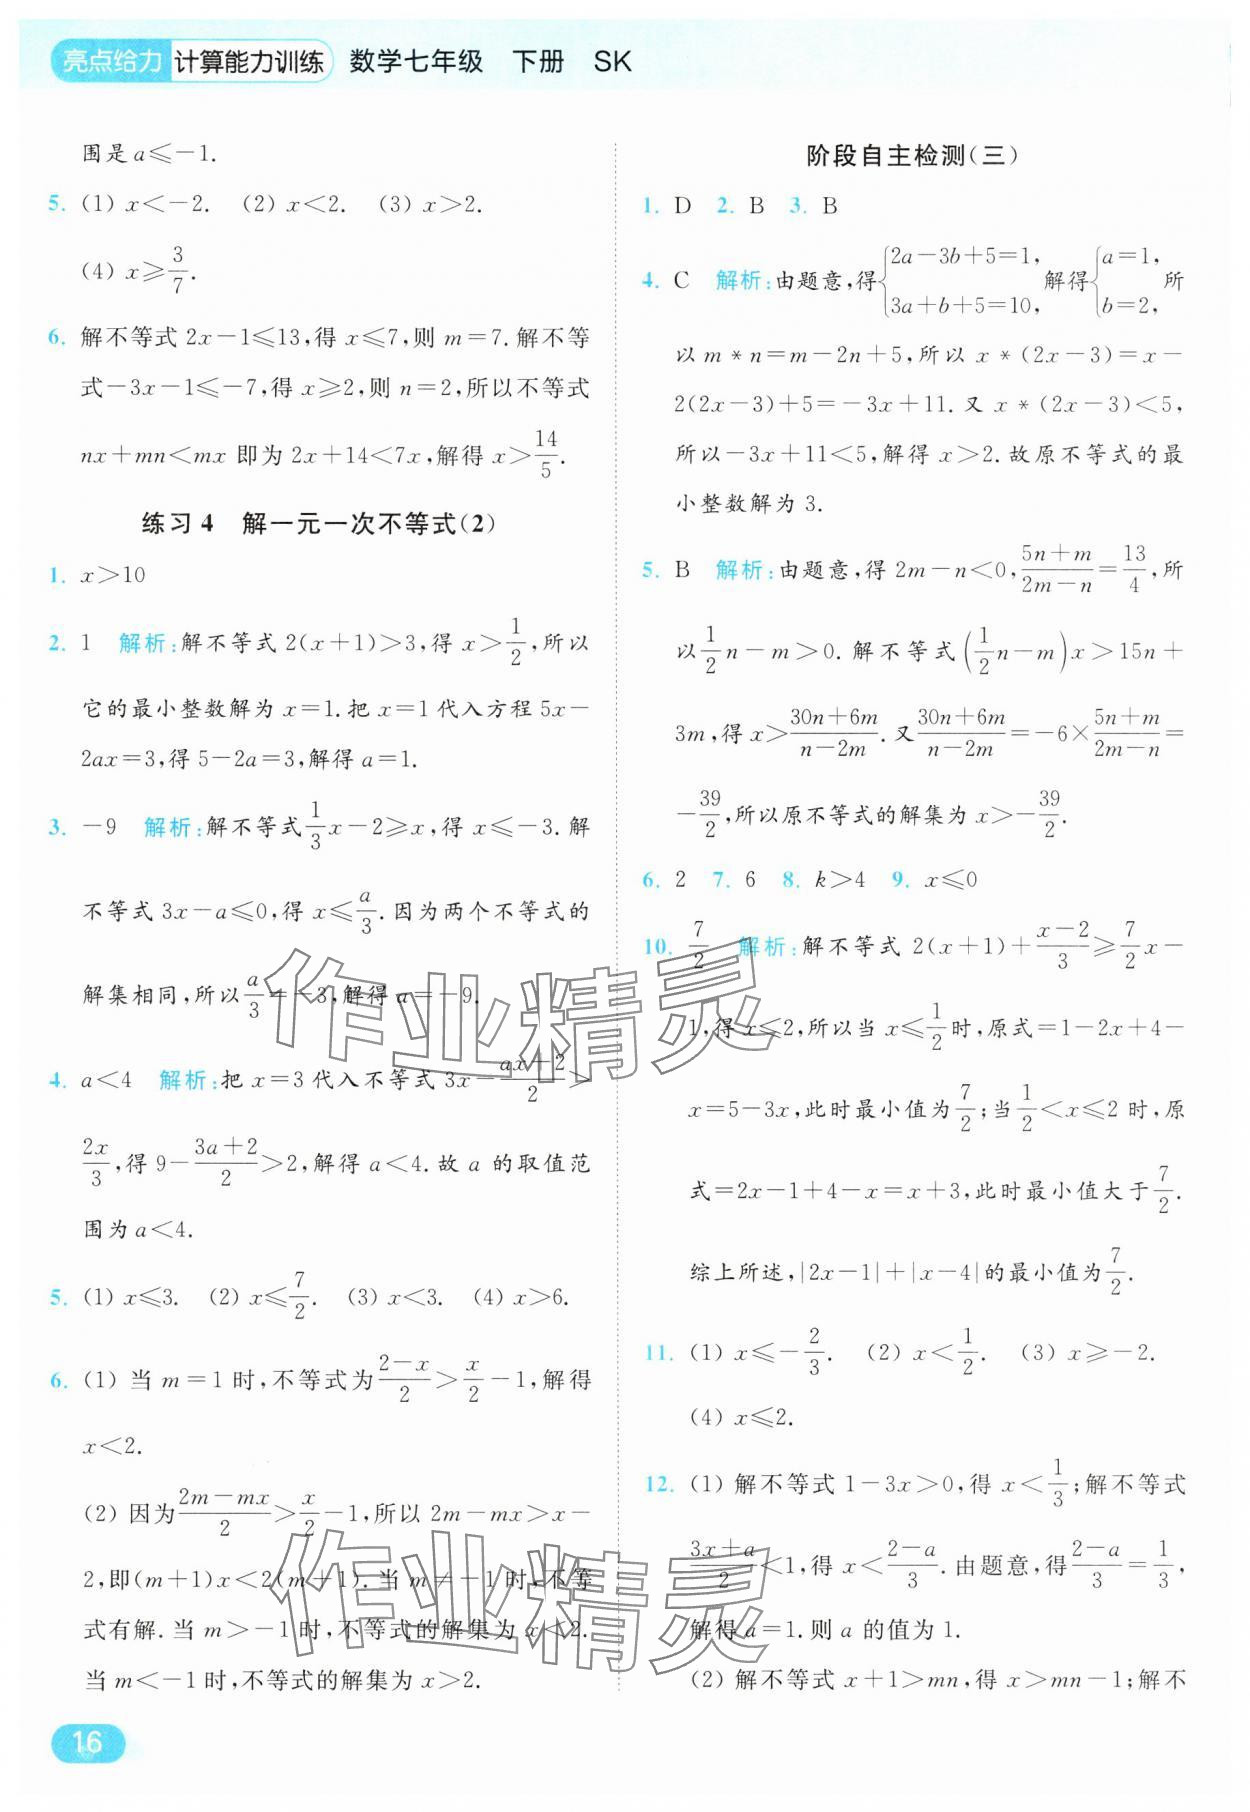 亮点给力 计算能力训练 数学七年级 下册 SK
围是 a≤－1.
5. (1) x＜－2. (2) x＜2. (3) x＞2.
(4) x≥3/7.
6. 解不等式 2x－1≤13,得 x≤7,则 m＝7.解不等
式－3x－1≤－7,得 x≥2,则 n＝2,所以不等式
nx＋mn＜mx 即为 2x＋14＜7x,解得 x＞14/5.
练习 4 解一元一次不等式(2)
1. x＞10
2. 1 解析:解不等式 2(x＋1)＞3,得 x＞1/2,所以
它的最小整数解为 x＝1.把 x＝1 代入方程 5x－
2ax＝3,得 5－2a＝3,解得 a＝1.
3. －9 解析:解不等式 1/3 x－2≥x,得 x≤－3.解
不等式 3x－a≤0,得 x≤a/3.因为两个不等式的
解集相同,所以 a/3＝－3,解得 a＝－9.
4. a＜4 解析:把 x＝3 代入不等式 3x－(ax＋2)/2＞
2x/3,得 9－(3a＋2)/2＞2,解得 a＜4.故 a 的取值范
围为 a＜4.
5. (1) x≤3. (2) x≤7/2. (3) x＜3. (4) x＞6.
6. (1) 当 m＝1 时,不等式为 (2－x)/2＞x/2－1,解得
x＜2.
(2) 因为 (2m－mx)/2＞x/2－1,所以 2m－mx＞x－
2,即(m＋1)x＜2(m＋1).当 m≠－1 时,不等
式有解.当 m＞－1 时,不等式的解集为 x＜2.
当 m＜－1 时,不等式的解集为 x＞2.
16
阶段自主检测(三)
1. D 2. B 3. B
4. C 解析:由题意,得{2a－3b＋5＝1, 3a＋b＋5＝10, 解得{a＝1, b＝2, 所
以 m * n＝m－2n＋5,所以 x * (2x－3)＝x－
2(2x－3)＋5＝－3x＋11.又 x * (2x－3)＜5,
所以－3x＋11＜5,解得 x＞2.故原不等式的最
小整数解为 3.
5. B 解析:由题意,得 2m－n＜0,(5n＋m)/(2m－n)＝13/4,所
以 1/2 n－m＞0.解不等式(1/2 n－m)x＞15n＋
3m,得 x＞(30n＋6m)/(n－2m).又(30n＋6m)/(n－2m)＝－6×(5n＋m)/(2m－n)＝
－39/2,所以原不等式的解集为 x＞－39/2.
6. 2 7. 6 8. k＞4 9. x≤0
10. 7/2 解析:解不等式 2(x＋1)＋(x－2)/3≥7/2 x－
1,得 x≤2,所以当 x≤1/2 时,原式＝1－2x＋4－
x＝5－3x,此时最小值为 7/2;当 1/2＜x≤2 时,原
式＝2x－1＋4－x＝x＋3,此时最小值大于 7/2.
综上所述,|2x－1|＋|x－4|的最小值为 7/2.
11. (1) x≤－2/3. (2) x＜1/2. (3) x≥－2.
(4) x≤2.
12. (1) 解不等式 1－3x＞0,得 x＜1/3;解不等式
(3x＋a)/2＜1,得 x＜(2－a)/3.由题意,得(2－a)/3＝1/3,
解得 a＝1.则 a 的值为 1.
(2) 解不等式 x＋1＞mn,得 x＞mn－1;解不
作业精灵
作业精灵